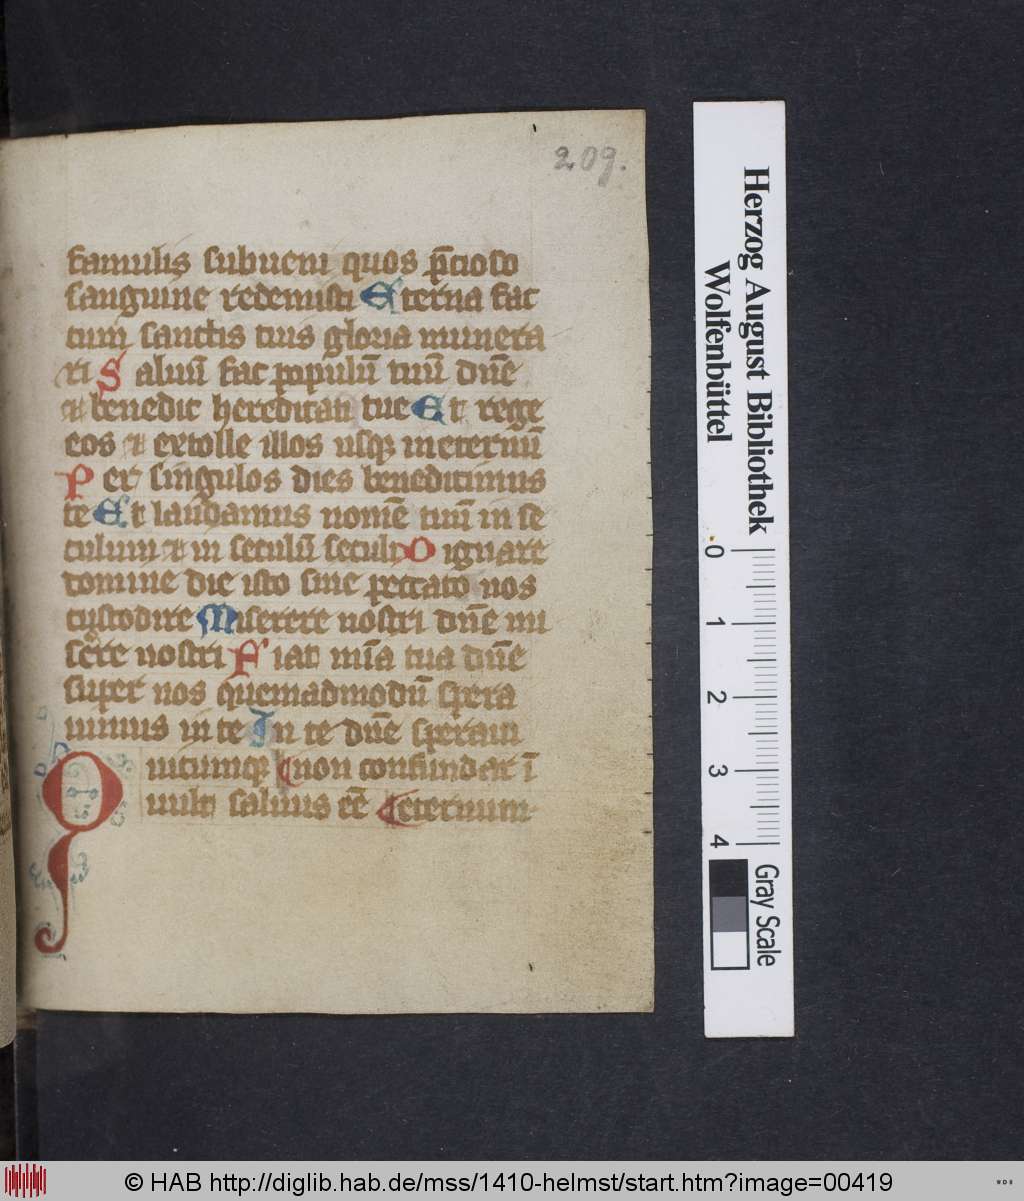 209.
famulis subueni quos p̄cioso
sanguine redemisti Eterna fac
cum sanctis tuis gloria munera
ri Saluū fac populū tuū dn̄e
et benedic hereditati tue Et rege
eos et extolle illos usq̨ in eternū
Per singulos dies benedicimus
te Et laudamus nomē tuū in se
culum et in seculū seculi Dignare
domine die isto sine peccato nos
custodire Miserere nostri dn̄e mi
sere nostri Fiat mīa tua dn̄e
super nos quemadmodū spera
uimus in te In te dn̄e speraui
Quicumq̨ non confundar ī
uult saluus eē eternum
Herzog August Bibliothek
Wolfenbüttel
0 1 2 3 4
Gray Scale
© HAB http://diglib.hab.de/mss/1410-helmst/start.htm?image=00419
WDB